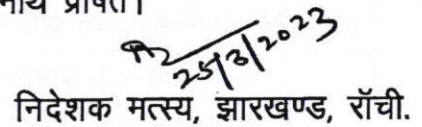 प्रेषित।
25/3/2023
निदेशक मत्स्य, झारखण्ड, राँची.